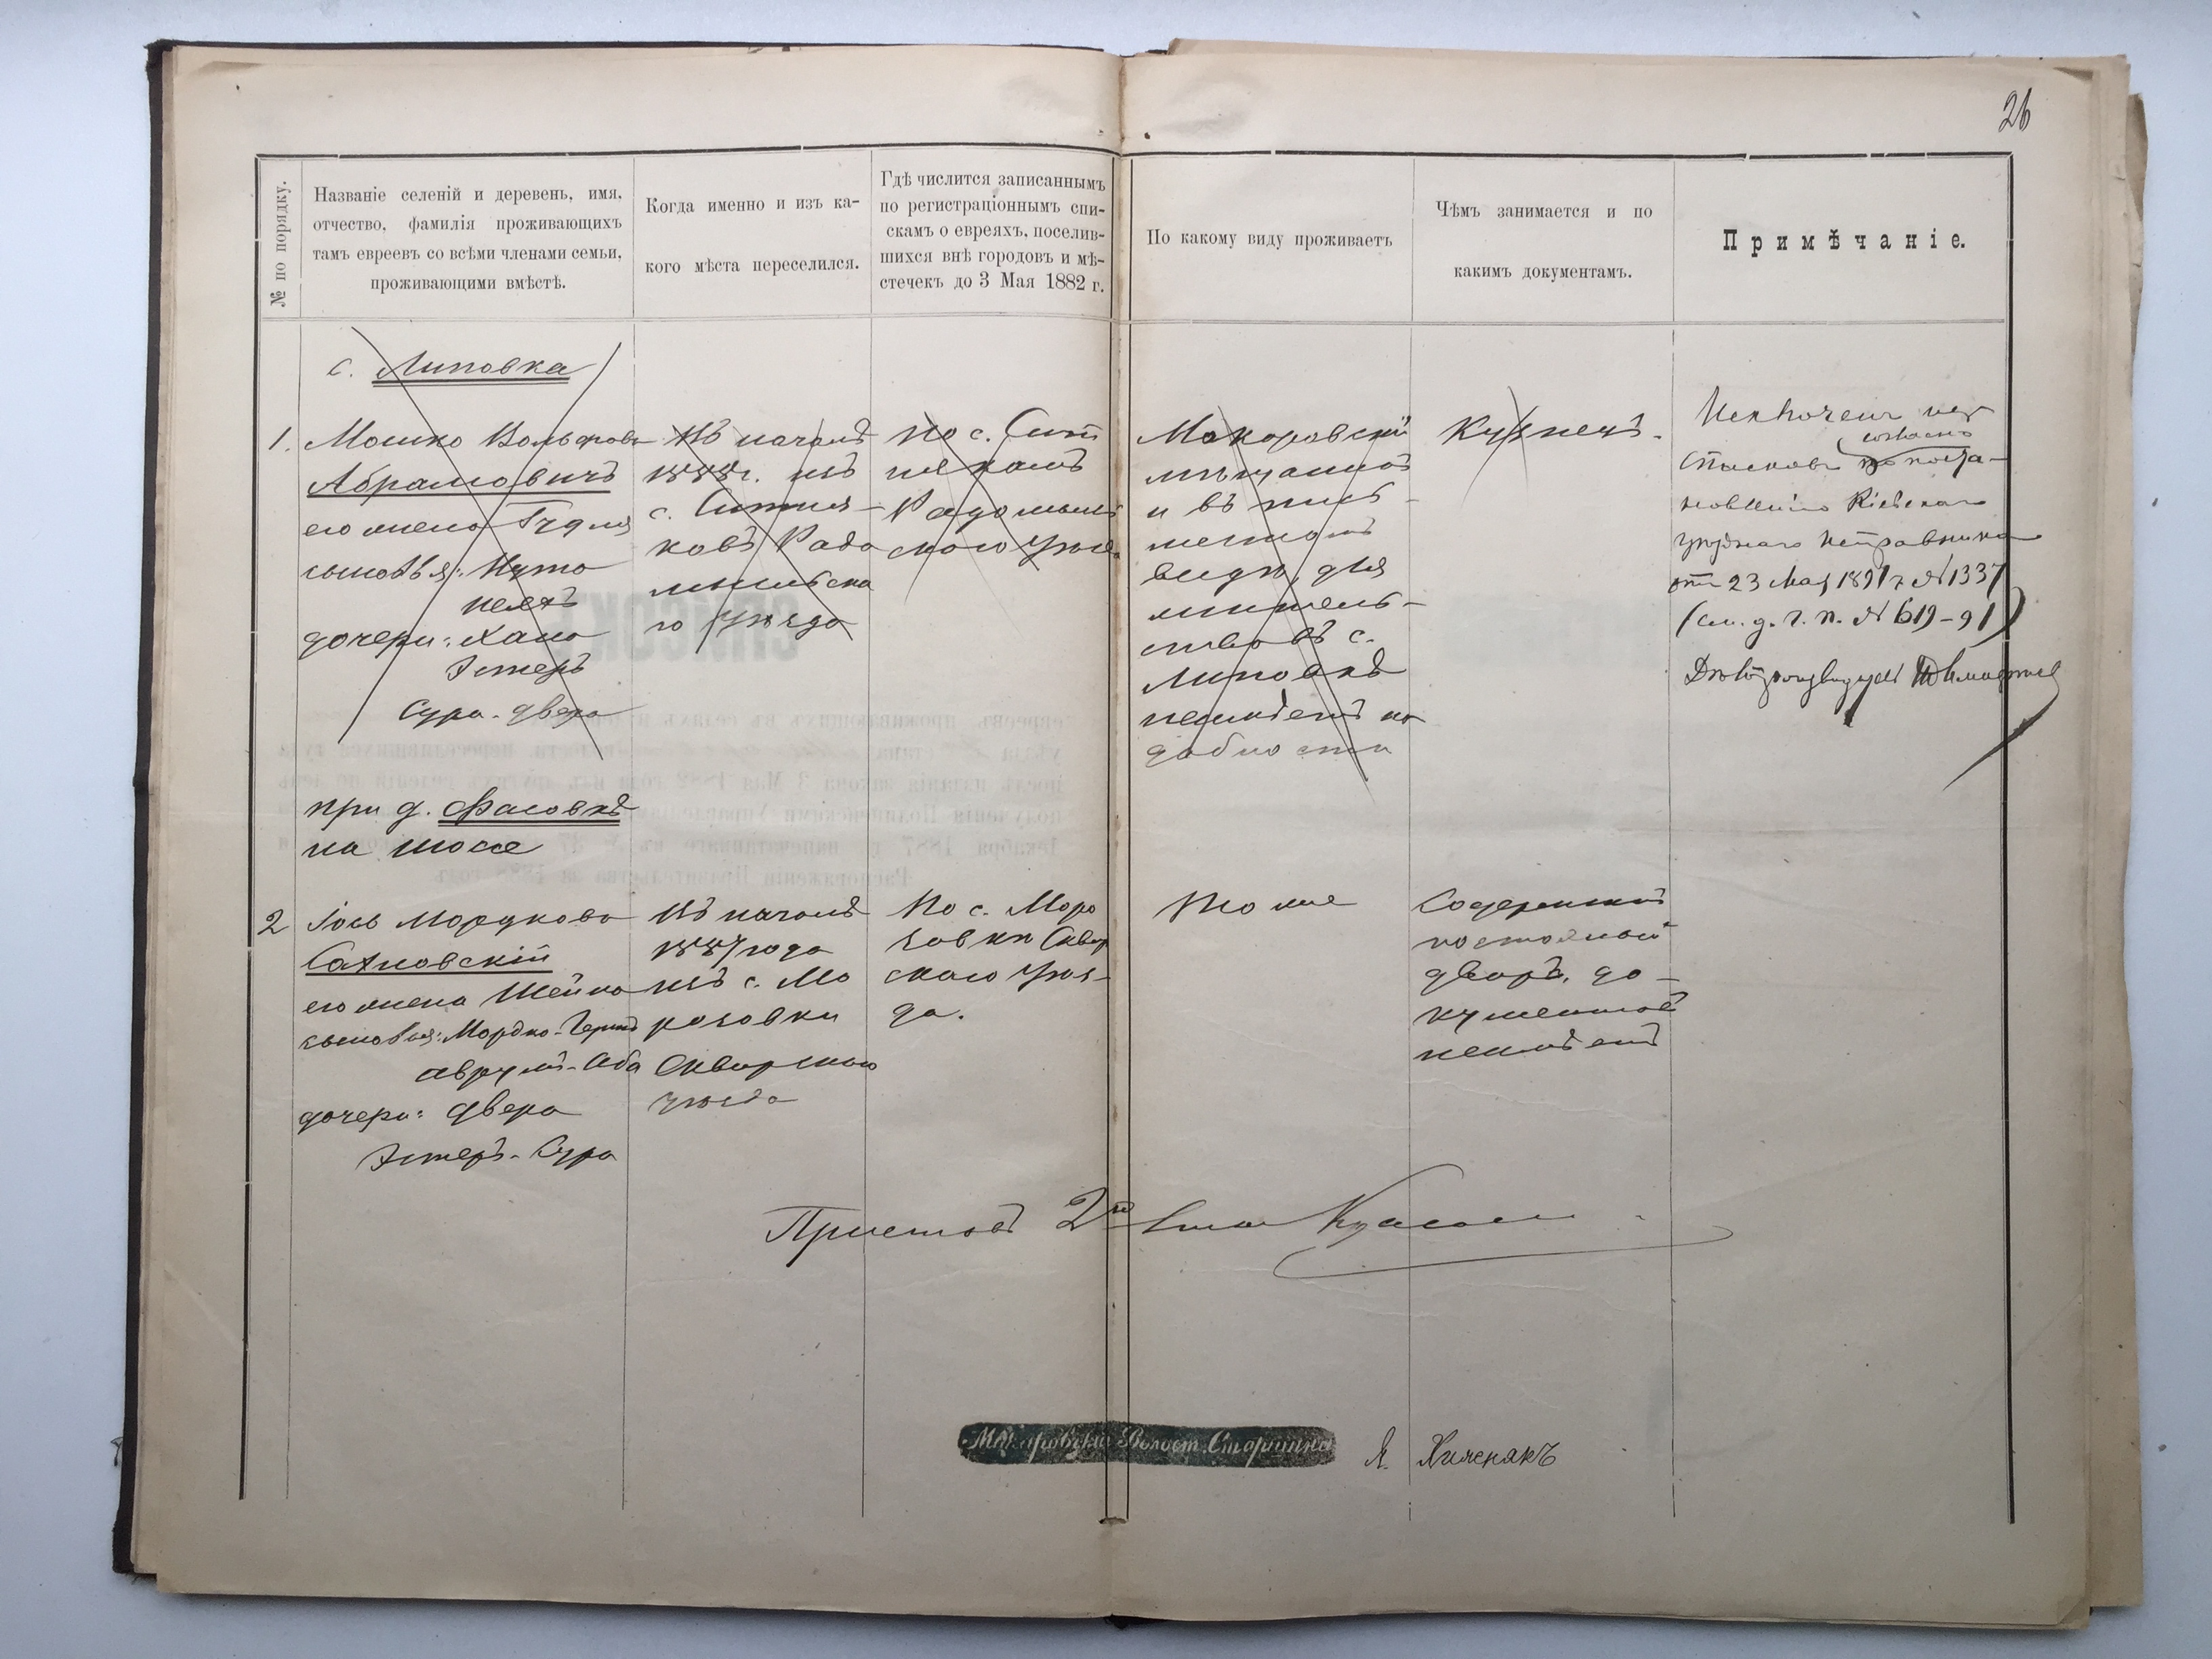 26
№ по порядку.
Названіе селеній и деревень, имя,
отчество, фамилія проживающихъ
тамъ евреевъ со всѣми членами семьи,
проживающими вмѣстѣ.
Когда именно и изъ ка-
кого мѣста переселился.
Гдѣ числится записаннымъ
по регистраціоннымъ спи-
скамъ о евреяхъ, поселив-
шихся внѣ городовъ и мѣ-
стечекъ до 3 Мая 1882 г.
По какому виду проживаетъ
Чѣмъ занимается и по
какимъ документамъ.
Примѣчаніе.
с. Липовка
1. Мошко Вольфовъ
Абрамовичъ
его жена Гудля
сыновья: Нута
дочери: Хана
Эстеръ
Сура-Двера
Въ началѣ
188 г. изъ
с. Ситня-
ковъ Радо
мысльска
го уѣзда
По с. Сит
някамъ
Радомысль
скаго уѣзда
Макаровскій
мѣщанинъ
и въ пись-
менномъ
вида для
житель-
ства въ с.
Липовкѣ
неимѣетъ на
добности
Кузнецъ.
Исключенъ изъ
согласно
списковъ поста-
новленію Кіевскаго
уѣзднаго Исправника
отъ 23 Мая 1891 г № 1337
(см. д. г. п. № 619-91)
Дѣлопроизводитель
при д. Фасовкѣ
на шоссе
2 Іось Мордковъ
Сахновскій
его жена Шейна
сыновья: Мордко-Гершъ
Аврумъ-Аба
дочери: Двера
Эстеръ-Сура
Въ началѣ
1887 года
изъ с. Мо
розовки
Сквирскаго
уѣзда
По с. Моро
зовки Сквир
скаго уѣз-
да.
Тоже
Содержитъ
постоялый
дворъ, до-
кументовъ
неимѣетъ
Приставъ 2го Стана
Макаровскій Волост. Старшина
Я. Хиленякъ